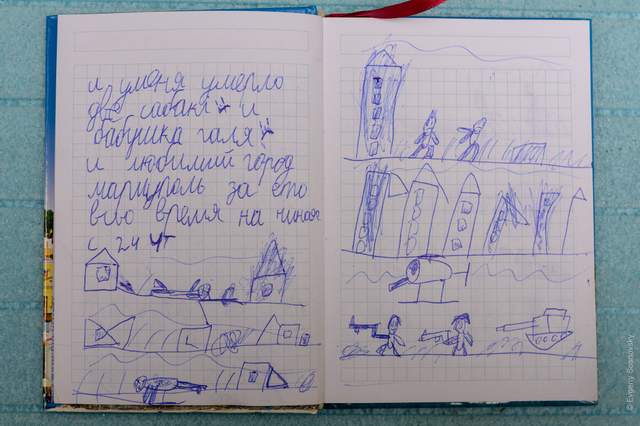 и уменя умерло
две сабаки и
бабушка галя
и любимий город
мариуполь за ето
всьо время на чиная
с 24 чт
© Evgeny Sosnovsky